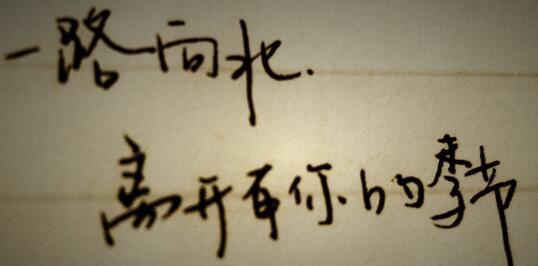 一路向北.
离开有你的季节